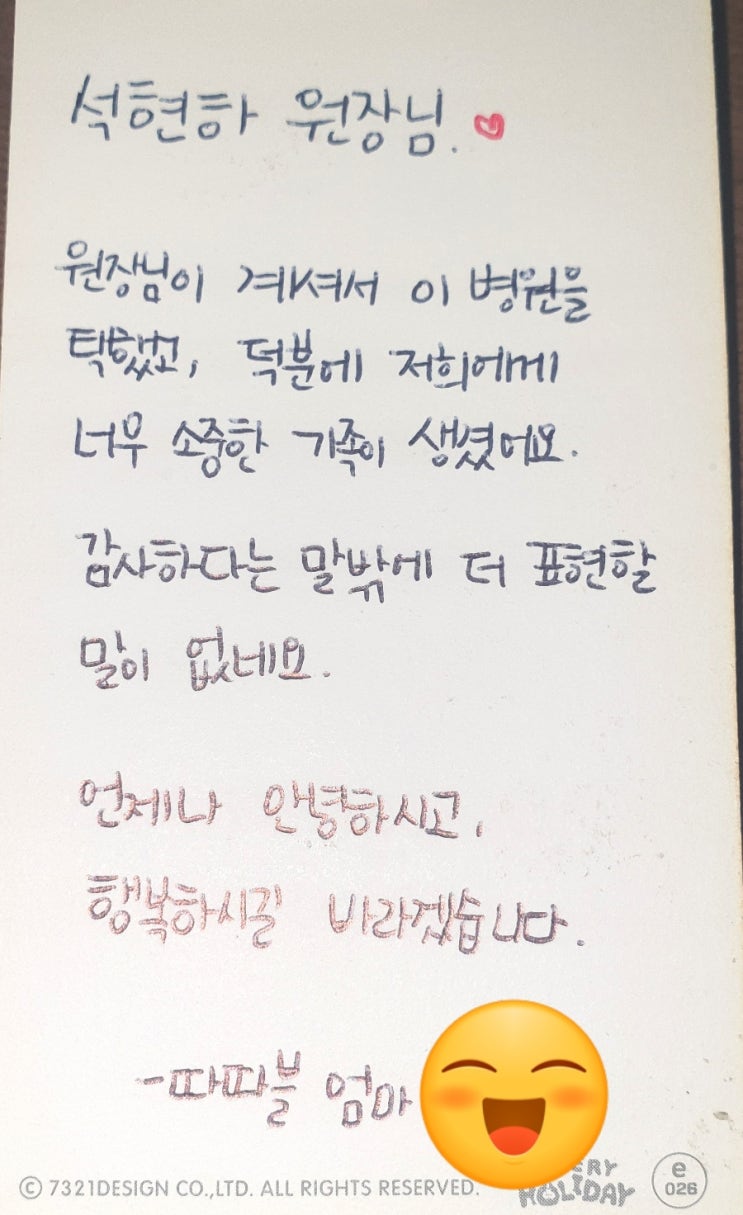 석현하 원장님. ♥
원장님이 계셔서 이 병원을
택했었고, 덕분에 저희에게
너무 소중한 가족이 생겼어요.
감사하다는 말밖에 더 표현할
말이 없네요.
언제나 안녕하시고,
행복하시길 바라겠습니다.
-따따블 엄마
© 7321DESIGN CO.,LTD. ALL RIGHTS RESERVED.
HOLIDAY
e
026